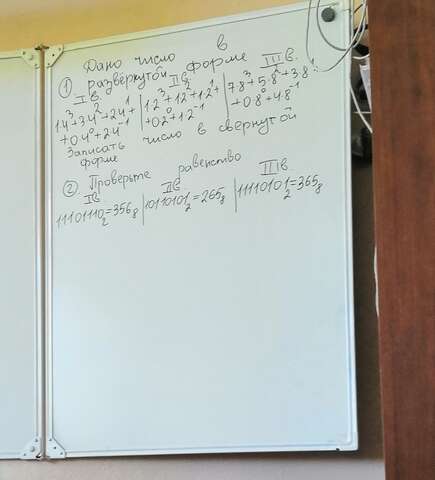 Дано число в
① развёрнутой форме
I в. II в. III в.
1·4³+3·4²+2·4¹+ | 1·2³+1·2²+1·2¹+ | 7·8³+5·8²+3·8¹+
+0·4⁰+2·4⁻¹ | +0·2⁰+1·2⁻¹ | +0·8⁰+4·8⁻¹
Записать число в свёрнутой
форме
② Проверьте равенство
I в. II в III в
11101110₂=356₈ | 10110101₂=265₈ | 11110101₂=365₈